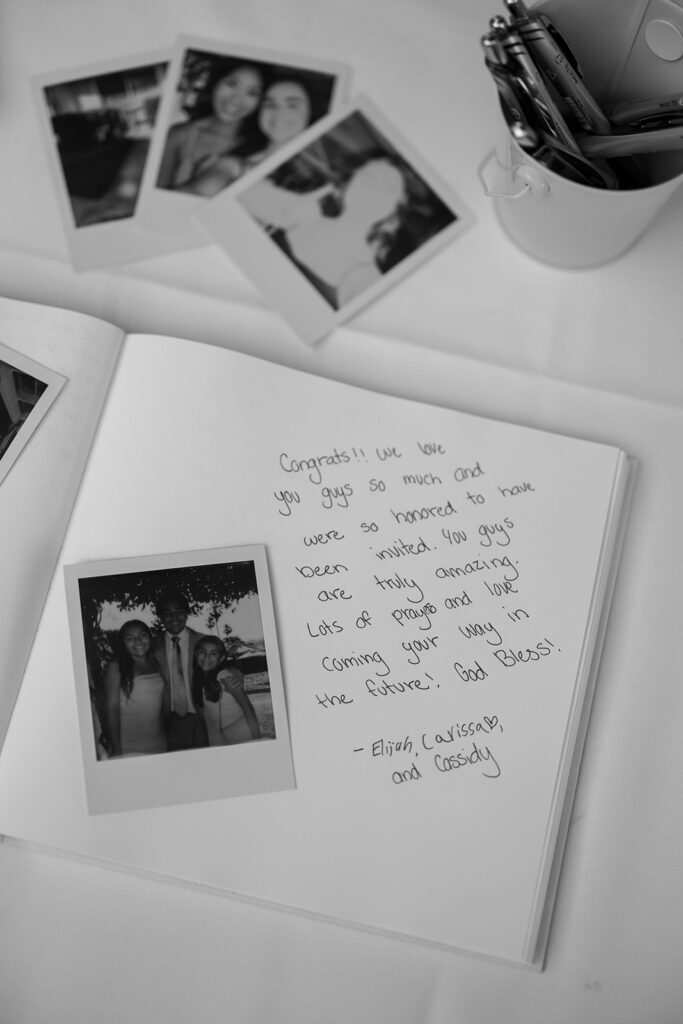 Congrats!! we love
you guys so much and
were so honored to have
been invited. You guys
are truly amazing.
Lots of prayers and love
coming your way in
the future! God Bless!
- Elijah, Carissa♡,
and Cassidy